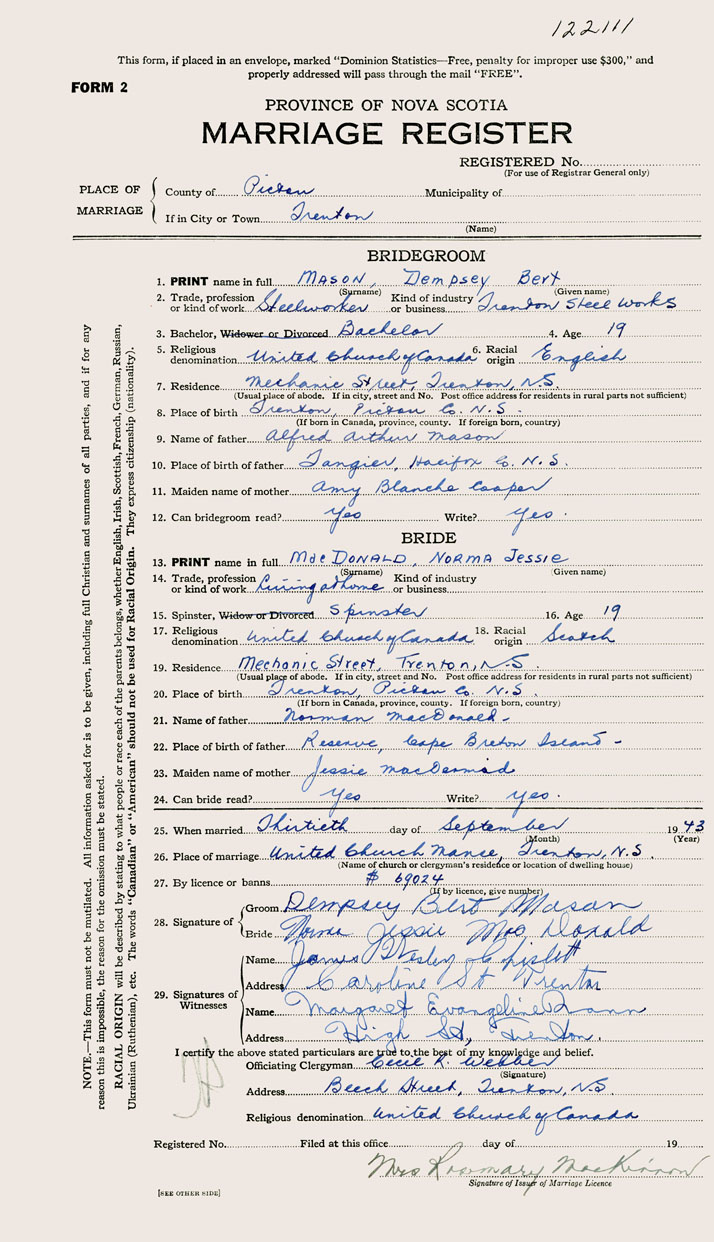 122111
This form, if placed in an envelope, marked "Dominion Statistics—Free, penalty for improper use $300," and
properly addressed will pass through the mail "FREE".
FORM 2
PROVINCE OF NOVA SCOTIA
MARRIAGE REGISTER
REGISTERED No.
(For use of Registrar General only)
PLACE OF MARRIAGE
County of Pictou Municipality of
If in City or Town Trenton
(Name)
BRIDEGROOM
1. PRINT name in full MASON, Dempsey Bert
(Surname) (Given name)
2. Trade, profession or kind of work Steelworker Kind of industry or business Trenton Steel Works
3. Bachelor, Widower or Divorced Bachelor 4. Age 19
5. Religious denomination United Church of Canada 6. Racial origin English
7. Residence Mechanic Street, Trenton, N.S.
(Usual place of abode. If in city, street and No. Post office address for residents in rural parts not sufficient)
8. Place of birth Trenton, Pictou Co. N.S.
(If born in Canada, province, county. If foreign born, country)
9. Name of father Alfred Arthur Mason
10. Place of birth of father Tangier, Halifax Co. N.S.
11. Maiden name of mother Amy Blanche Cooper
12. Can bridegroom read? Yes Write? Yes.
BRIDE
13. PRINT name in full MacDONALD, NORMA JESSIE
(Surname) (Given name)
14. Trade, profession or kind of work Living at home Kind of industry or business
15. Spinster, Widow or Divorced Spinster 16. Age 19
17. Religious denomination United Church of Canada 18. Racial origin Scotch
19. Residence Mechanic Street, Trenton, N.S.
(Usual place of abode. If in city, street and No. Post office address for residents in rural parts not sufficient)
20. Place of birth Trenton, Pictou Co. N.S.
(If born in Canada, province, county. If foreign born, country)
21. Name of father Norman MacDonald -
22. Place of birth of father Reserve, Cape Breton Island -
23. Maiden name of mother Jessie MacDermid
24. Can bride read? Yes Write? Yes.
25. When married Thirtieth day of September 1943
(Month) (Year)
26. Place of marriage United Church Manse, Trenton, N.S.
(Name of church or clergyman's residence or location of dwelling house)
27. By licence or banns # 69024
(If by licence, give number)
28. Signature of
Groom Dempsey Bert Mason
Bride Norma Jessie MacDonald
29. Signatures of Witnesses
Name James Wesley Chislett
Address Caroline St Trenton
Name Margaret Evangeline
Address High St, Trenton.
I certify the above stated particulars are true to the best of my knowledge and belief.
Officiating Clergyman Cecil R. Webber
(Signature)
Address Beech Street, Trenton, N.S.
Religious denomination United Church of Canada
Registered No. Filed at this office day of 19
Mrs Rosemary MacKinnon
Signature of Issuer of Marriage Licence
[SEE OTHER SIDE]
NOTE.—This form must not be mutilated. All information asked for is to be given, including full Christian and surnames of all parties, and if for any
reason this is impossible, the reason for the omission must be stated.
RACIAL ORIGIN will be described by stating to what people or race each of the parents belongs, whether English, Irish, Scottish, French, German, Russian,
Ukrainian (Ruthenian), etc. The words "Canadian" or "American" should not be used for Racial Origin. They express citizenship (nationality).